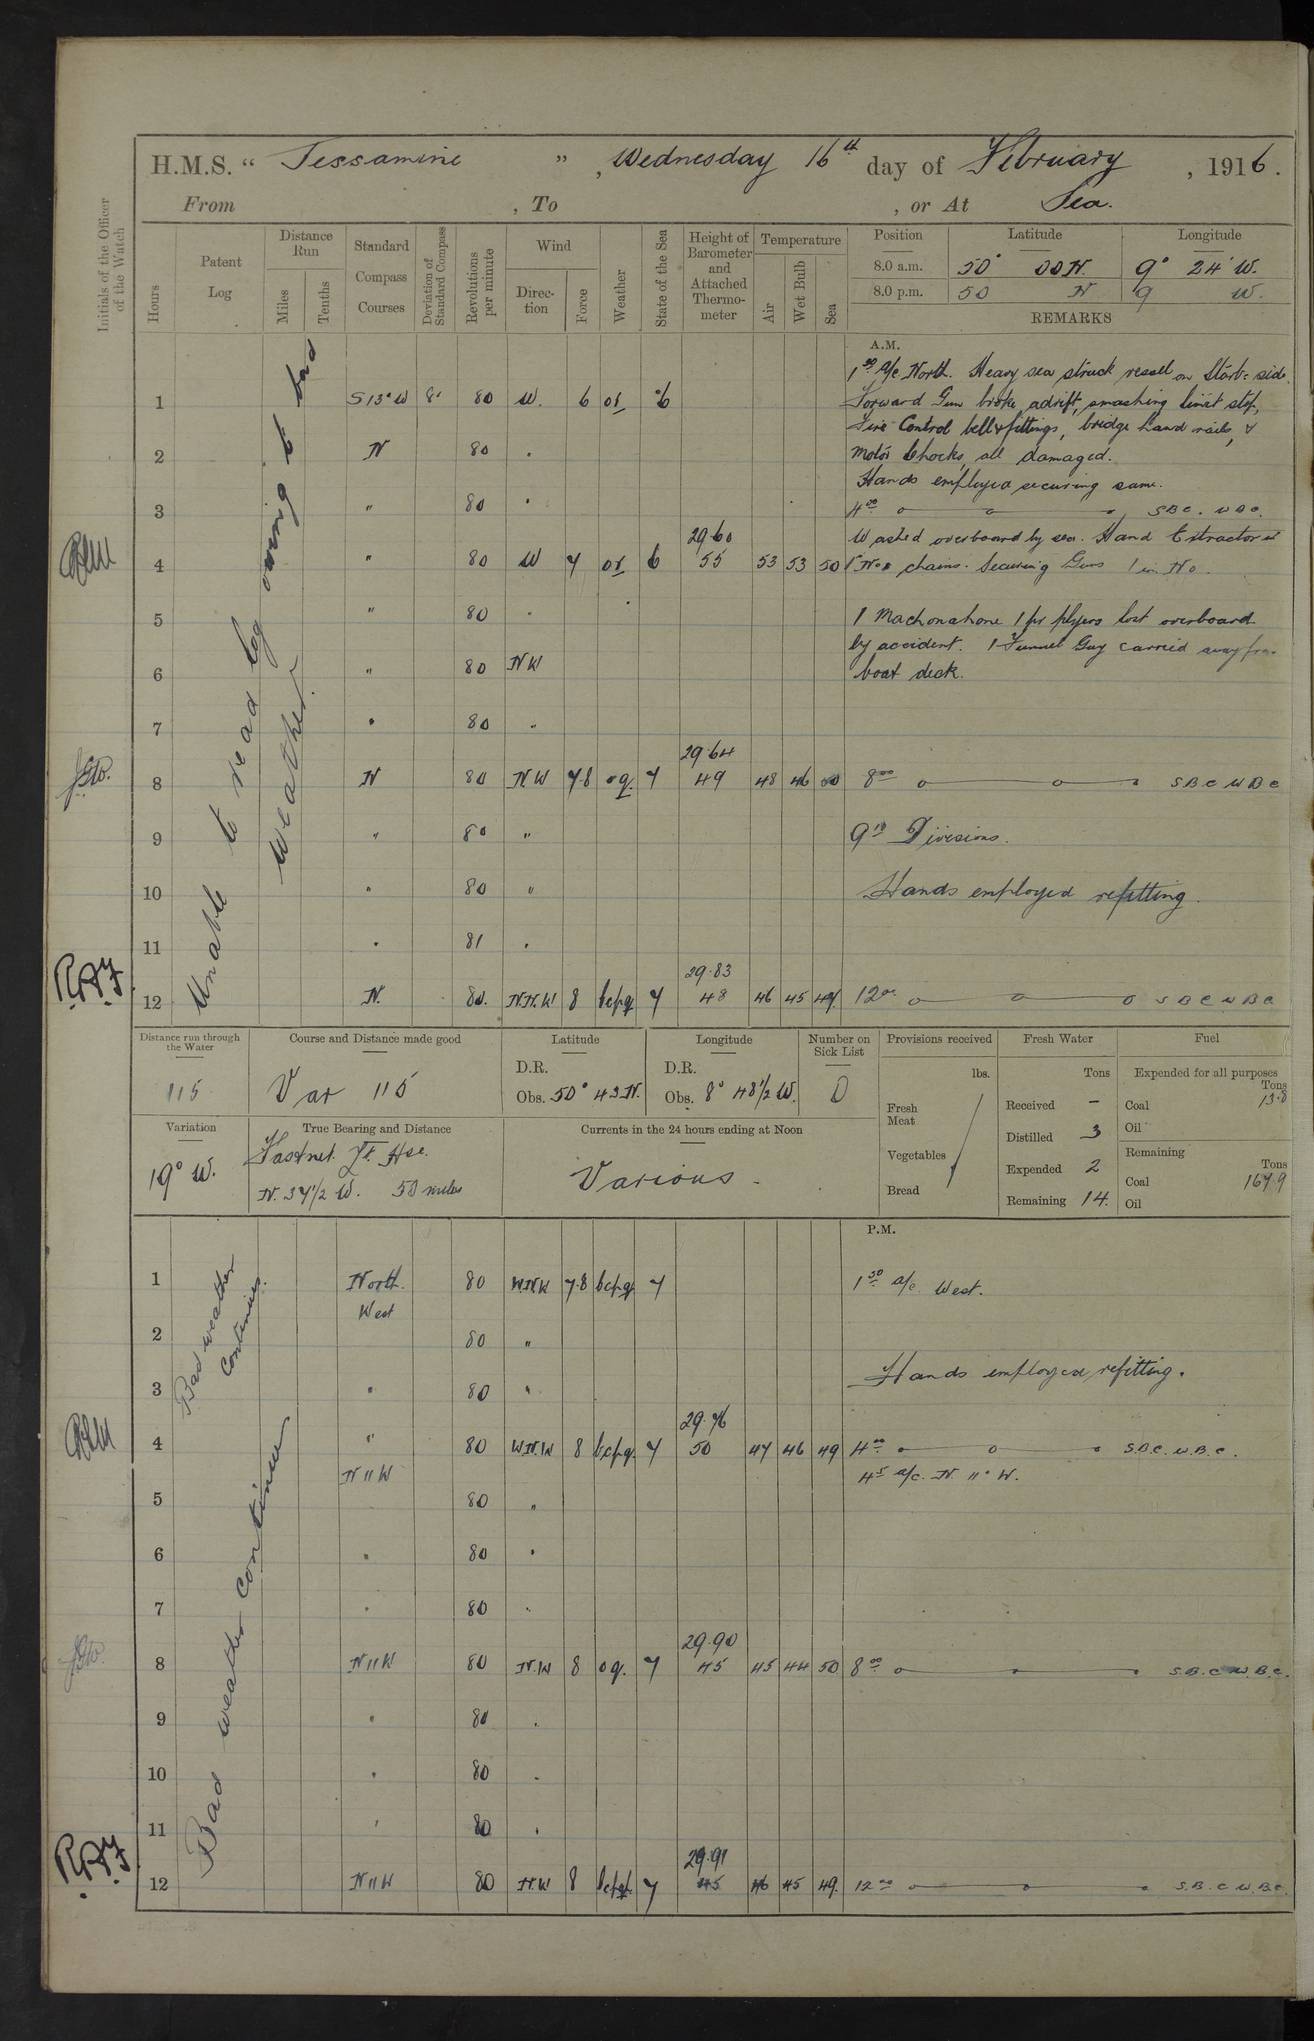 H.M.S. “ Jessamine ” , Wednesday 16th day of February , 1916.
From , To , or At Sea.
Initials of the Officer of the Watch
Hours
Patent Log
Distance Run
Miles
Tenths
Standard Compass Courses
Deviation of Standard Compass
Revolutions per minute
Wind
Direction
Force
Weather
State of the Sea
Height of Barometer and Attached Thermometer
Temperature
Air
Wet Bulb
Sea
Position Latitude Longitude
8.0 a.m. 50° 00 N. 9° 24' W.
8.0 p.m. 50 N 9 W.
REMARKS
A.M.
Unable to read log owing to bad
weather.
1 S 13° W 8° 80 W. 6 or 6
1 30 a/c North. Heavy sea struck vessel on Starb. side.
Forward Gun broke adrift, smashing limit stop,
Fire Control bell & fittings, bridge hand rails, &
2 N 80 "
Motor Chocks, all damaged.
Hands employed securing same.
3 " 80 "
4 00 S B C. W B C.
29.60
Washed overboard by sea. Hand Extractor
4 " 80 W 7 or 6 55 53 53 50
chains. Securing Guns 1 in No.
5 " 80 "
1 Machonahone 1 pr plyers lost overboard
by accident. 1 Funnel Guy carried away from
6 " 80 NW
boat deck.
7 " 80 "
29.64
8 N 80 N.W 7.8 oq. 7 49 48 46 50 8 00 S B C W B C
9 " 80 " 9 10 Divisions.
10 " 80 " Hands employed refitting.
11 " 81 "
29.83
R.A.F.
12 N. 80. N.N.W 8 bcpq 7 48 46 45 49. 12 00 S B C W B C
Distance run through the Water
115
Course and Distance made good
Var 115
Latitude
D.R.
Obs. 50° 43 N.
Longitude
D.R.
Obs. 8° 48 1/2 W.
Number on Sick List
0
Provisions received
lbs.
Fresh Meat
Vegetables
Bread
Fresh Water
Tons
Received –
Distilled 3
Expended 2
Remaining 14.
Fuel
Expended for all purposes
Tons
Coal 13.8
Oil
Remaining
Tons
Coal 167.9
Oil
Variation
19° W.
True Bearing and Distance
Fastnet Lt. Hse.
N. 37 1/2 W. 50 miles
Currents in the 24 hours ending at Noon
Various
P.M.
Bad weather
Continues.
1 North. 80 W.N.W 7.8 bcpq 7 1 30 a/c West.
West
2 80 "
3 " 80 " Hands employed refitting.
29.76
4 " 80 W.N.W 8 bcpq. 7 50 47 46 49 4 00 S.B.C. W.B.C.
N 11 W 4 5 a/c. N. 11° W.
Bad weather continues
5 80 "
6 " 80 "
7 " 80 "
29.90
8 N 11 W 80 N.W 8 oq. 7 45 45 44 50 8 00 S.B.C W.B.C.
9 " 80 "
10 " 80 "
11 " 80 "
29.91
R.A.F.
12 N 11 W 80 N.W 8 bcpq 7 45 46 45 49. 12 00 S.B.C W.B.C